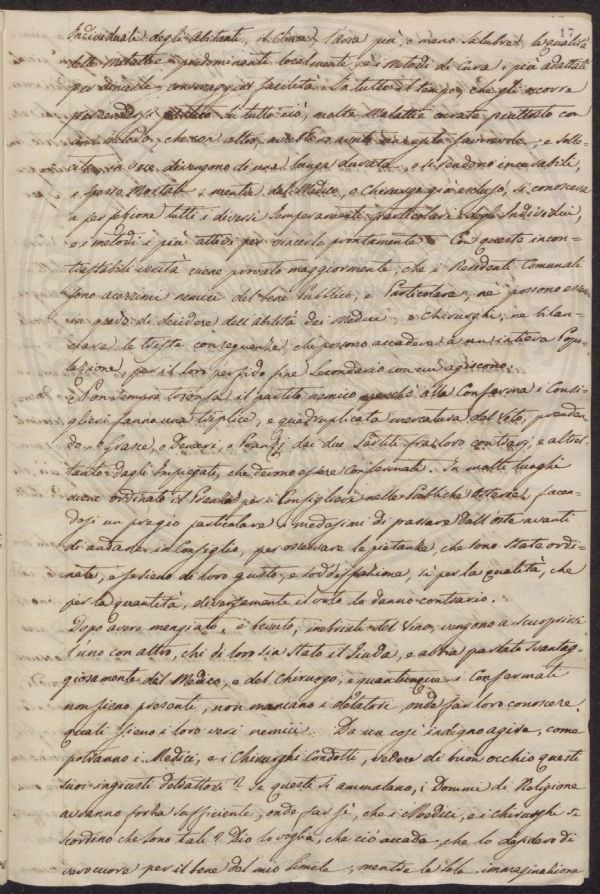 17
Individuali degli Abitanti, il Clima, l'aria più, o meno Salubre, la qualità
delle Malattie predominanti localmente, e i metodi di Cura i più adattati
per vincerle con maggior facilità. In tutto il tempo, che gli occorra
per rendersi pratico in tutto ciò, molte Malattie curate piuttosto con
un metodo, che con altro, avrebbero avuto un esito favorevole, e solle-
cito, in vece divengono di una lunga durata, o si rendono incurabili,
e spesso Mortali; mentre dal Medico, o Chirurgo già escluso, si conosceva
a perfezione tutti i diversi Temperamenti particolari degli Individui,
e i metodi i più atti per vincerle prontamente. Con queste incon-
trastabili verità viene provato maggiormente, che i Residenti Comunali
sono acerrimi nemici del bene Pubblico, e Particolare, nè possono essere
in grado di decidere dell'abilità dei Medici, e Chirurghi, ne bilan-
ciare le triste conseguenze, che possono accadere a un'intiera Popo-
lazione, per il loro perfido fine Secondario con cui agiscono.
Non sempre trionfa il partito nemico perchè alla Conferma i Consi-
glieri fanno una triplice, e quadruplicata mercatura del Voto, prenden-
do o Grasce, o Denari, o Pranzi dai due Partiti fra loro contrarj, e altret-
tanto dagli Impiegati, che devono essere Confermati. In molti luoghi
viene ordinato il Pranzo per i Consiglieri nelle Pubbliche Osterie, facen-
dosi un pregio particolare i medesimi di passare dall'oste avanti
di andare in Consiglio, per osservare le pietanze, che sono State ordi-
nate, e se sieno di loro gusto, e soddisfazione, sì per la qualità, che
per la quantità, diversamente il voto lo danno contrario.
Dopo avere mangiato, e bevuto, inebriati del Vino, vengono a scuoprirsi
l'uno con altro, chi di loro sia Stato il Giuda, e abbia parlato svantag-
giosamente del Medico, e del Chirurgo, e quantunque i Confermati
non sieno presenti, non mancano i delatori, onde far loro conoscere
quali sieno i loro veri nemici. Da un così indegno agire, come
potranno i Medici, e i Chirurghi Condotti, vedere di buon occhio questi
suoi ingiusti detrattori? Se questi si ammalano, i Dommi di Religione
avranno forza sufficiente, onde far sì, che i Medici, e i Chirurghi si
scordino che sono tali? Dio lo voglia, che ciò accada, che lo desidero di
vero cuore per il bene del mio Simile; mentre la sola immaginazione